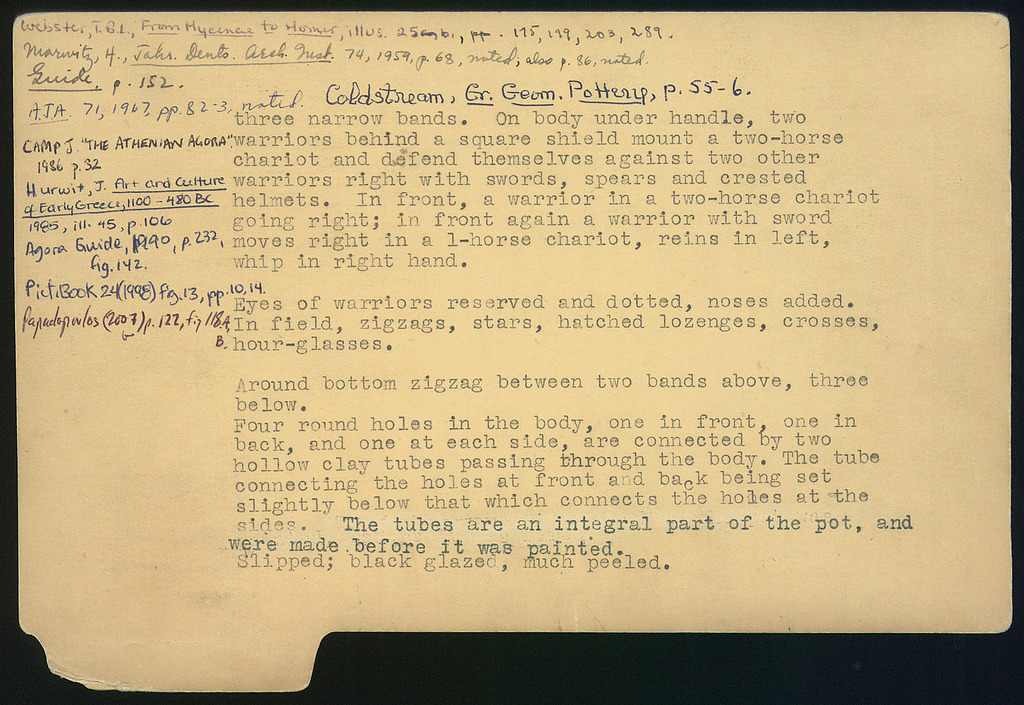 Webster, T.B.L., From Mycenae to Homer, illus. 25 a, b., pp. 175, 199, 203, 289.
Marwitz, H., Jahr. Deuts. Arch. Inst. 74, 1959, p. 68, noted; also p. 86, noted.
Guide, p. 152.
AJA. 71, 1967, pp. 82-3, noted.
Coldstream, Gr. Geom. Pottery, p. 55-6.
CAMP J. "THE ATHENIAN AGORA"
1986 p. 32
Hurwit, J. Art and Culture
of Early Greece, 1100 - 480 BC
1985, ill. 45, p. 106
Agora Guide, 1990, p. 232,
fig. 142.
Pict. Book 24 (1998) fig. 13, pp. 10, 14.
Papadopoulos (2007) p. 122, fig 118A,
B.
three narrow bands.  On body under handle, two
warriors behind a square shield mount a two-horse
chariot and defend themselves against two other
warriors right with swords, spears and crested
helmets.  In front, a warrior in a two-horse chariot
going right; in front again a warrior with sword
moves right in a l-horse chariot, reins in left,
whip in right hand.
Eyes of warriors reserved and dotted, noses added.
In field, zigzags, stars, hatched lozenges, crosses,
hour-glasses.
Around bottom zigzag between two bands above, three
below.
Four round holes in the body, one in front, one in
back, and one at each side, are connected by two
hollow clay tubes passing through the body. The tube
connecting the holes at front and back being set
slightly below that which connects the holes at the
sides.  The tubes are an integral part of the pot, and
were made before it was painted.
Slipped; black glazed, much peeled.